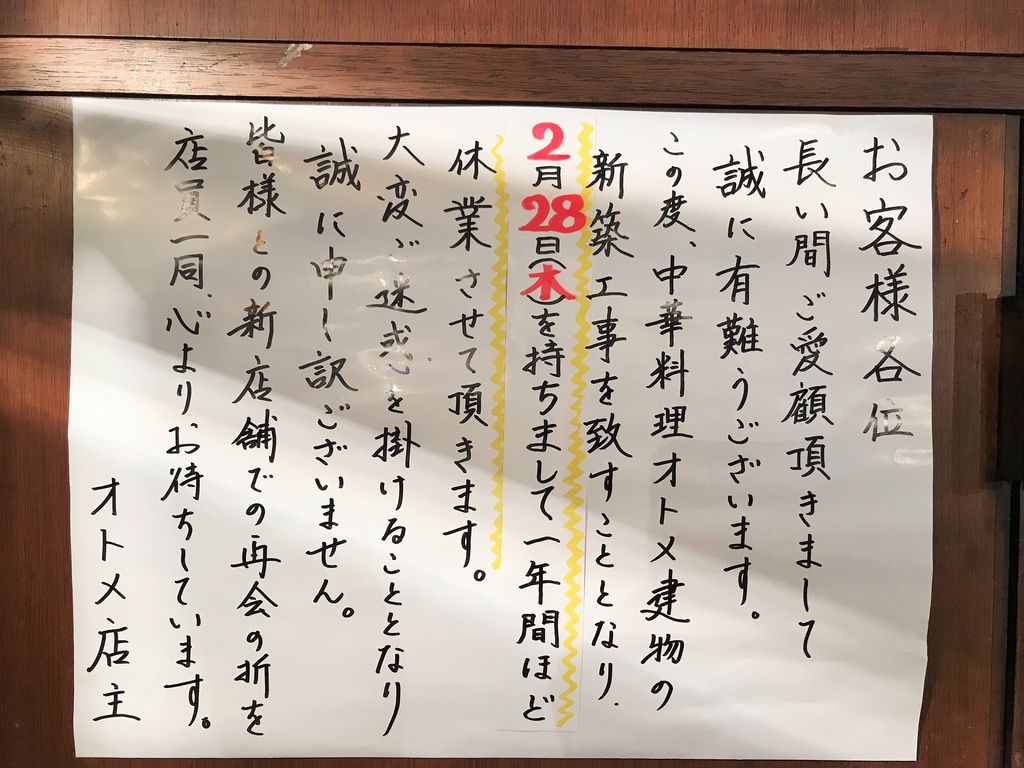 お客様各位
長い間ご愛顧頂きまして
誠に有難うございます。
この度、中華料理オトメ建物の
新築工事を致すこととなり.
2月28日(木)を持ちまして一年間ほど
休業させて頂きます。
大変ご迷惑を掛けることとなり
誠に申し訳ございません。
皆様との新店舗での再会の折を
店員一同、心よりお待ちしています。
オトメ店主